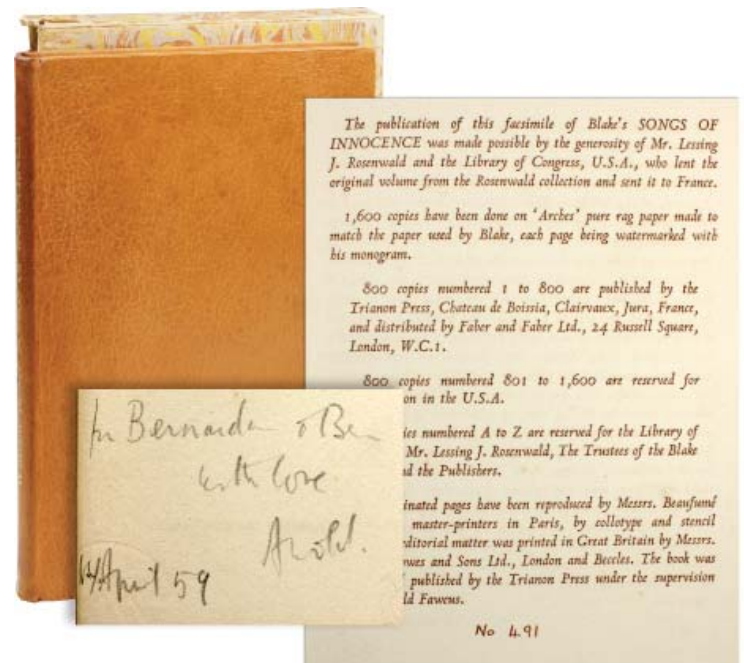 The publication of this facsimile of Blake's SONGS OF
INNOCENCE was made possible by the generosity of Mr. Lessing
J. Rosenwald and the Library of Congress, U.S.A., who lent the
original volume from the Rosenwald collection and sent it to France.
1,600 copies have been done on 'Arches' pure rag paper made to
match the paper used by Blake, each page being watermarked with
his monogram.
800 copies numbered 1 to 800 are published by the
Trianon Press, Chateau de Boissia, Clairvaux, Jura, France,
and distributed by Faber and Faber Ltd., 24 Russell Square,
London, W.C.1.
800 copies numbered 801 to 1,600 are reserved for
on in the U.S.A.
ies numbered A to Z are reserved for the Library of
Mr. Lessing J. Rosenwald, The Trustees of the Blake
d the Publishers.
inated pages have been reproduced by Messrs. Beaufumé
master-printers in Paris, by collotype and stencil
ditorial matter was printed in Great Britain by Messrs.
owes and Sons Ltd., London and Beccles. The book was
published by the Trianon Press under the supervision
ld Fawcus.
No 491
for Bernarda & Ben
with love.
Arnold.
April 59